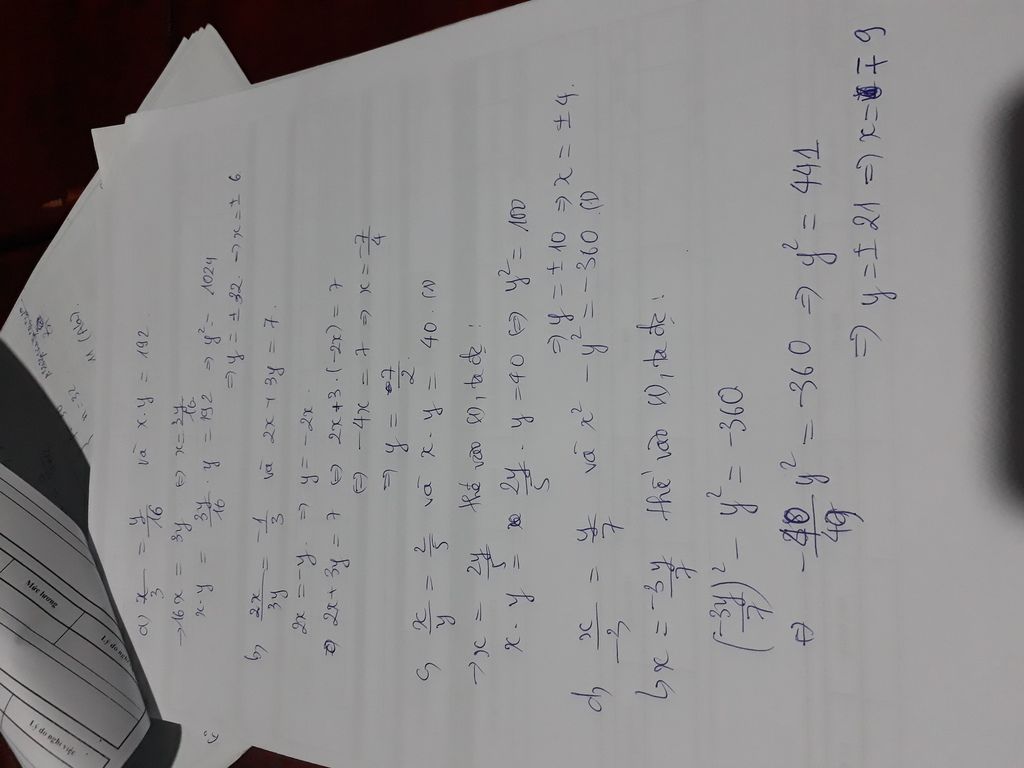 a) x/3 = y/16 và x.y = 192.
→ 16x = 3y ⇔ x = 3y/16
x.y = 3y/16 . y = 192 ⇒ y² = 1024
⇒ y = ± 32. ⇒ x = ± 6
b) 2x/3y = -1/3 và 2x + 3y = 7.
2x = -y. ⇒ y = -2x.
⇔ 2x + 3y = 7 ⇔ 2x + 3.(-2x) = 7
⇔ -4x = 7 ⇒ x = -7/4
⇒ y = 7/2
c) x/y = 2/5 và x.y = 40. (1)
→ x = 2y/5 thế vào (1), ta đc:
x.y = 2y/5 . y = 40 ⇔ y² = 100
⇒ y = ± 10 ⇒ x = ± 4.
d) x/-3 = y/7 và x² - y² = -360. (1)
↳ x = -3y/7 thế vào (1), ta đc:
(-3y/7)² - y² = -360
⇔ -40/49 y² = -360 ⇒ y² = 441
⇒ y = ± 21 ⇒ x = ∓ 9
Mức lương
Lý do nghỉ
Lý do nghỉ việc
n = 32